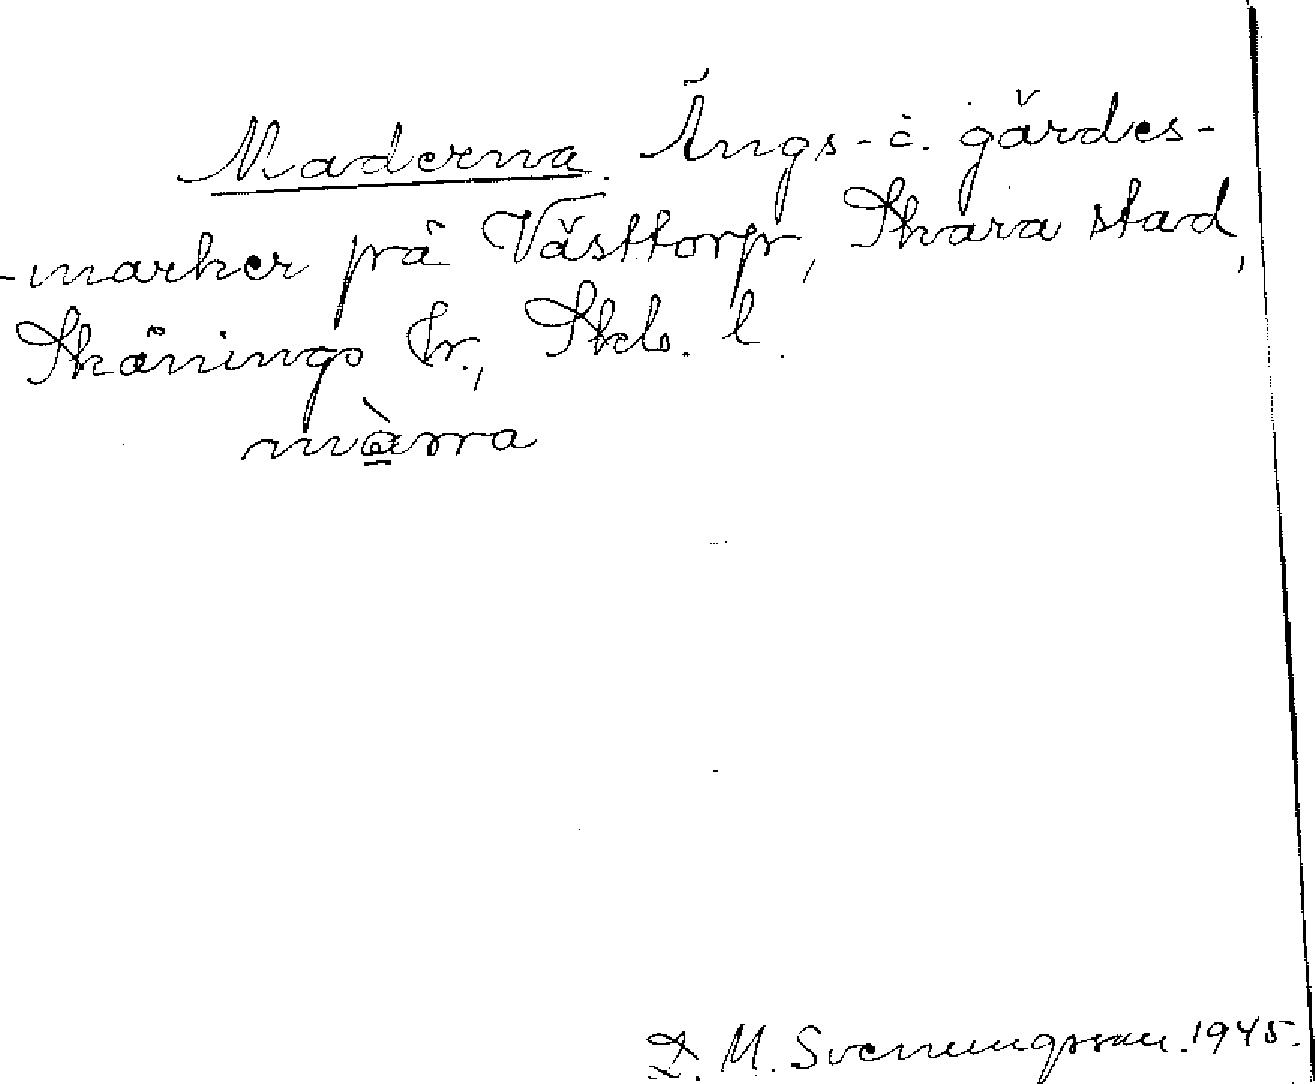 Maderna. Ängs- o. gärdes-
-marker på Västtorp, Skara stad,
Skånings hr., Skb. l.
màrra
D. M. Svenningsson. 1945.